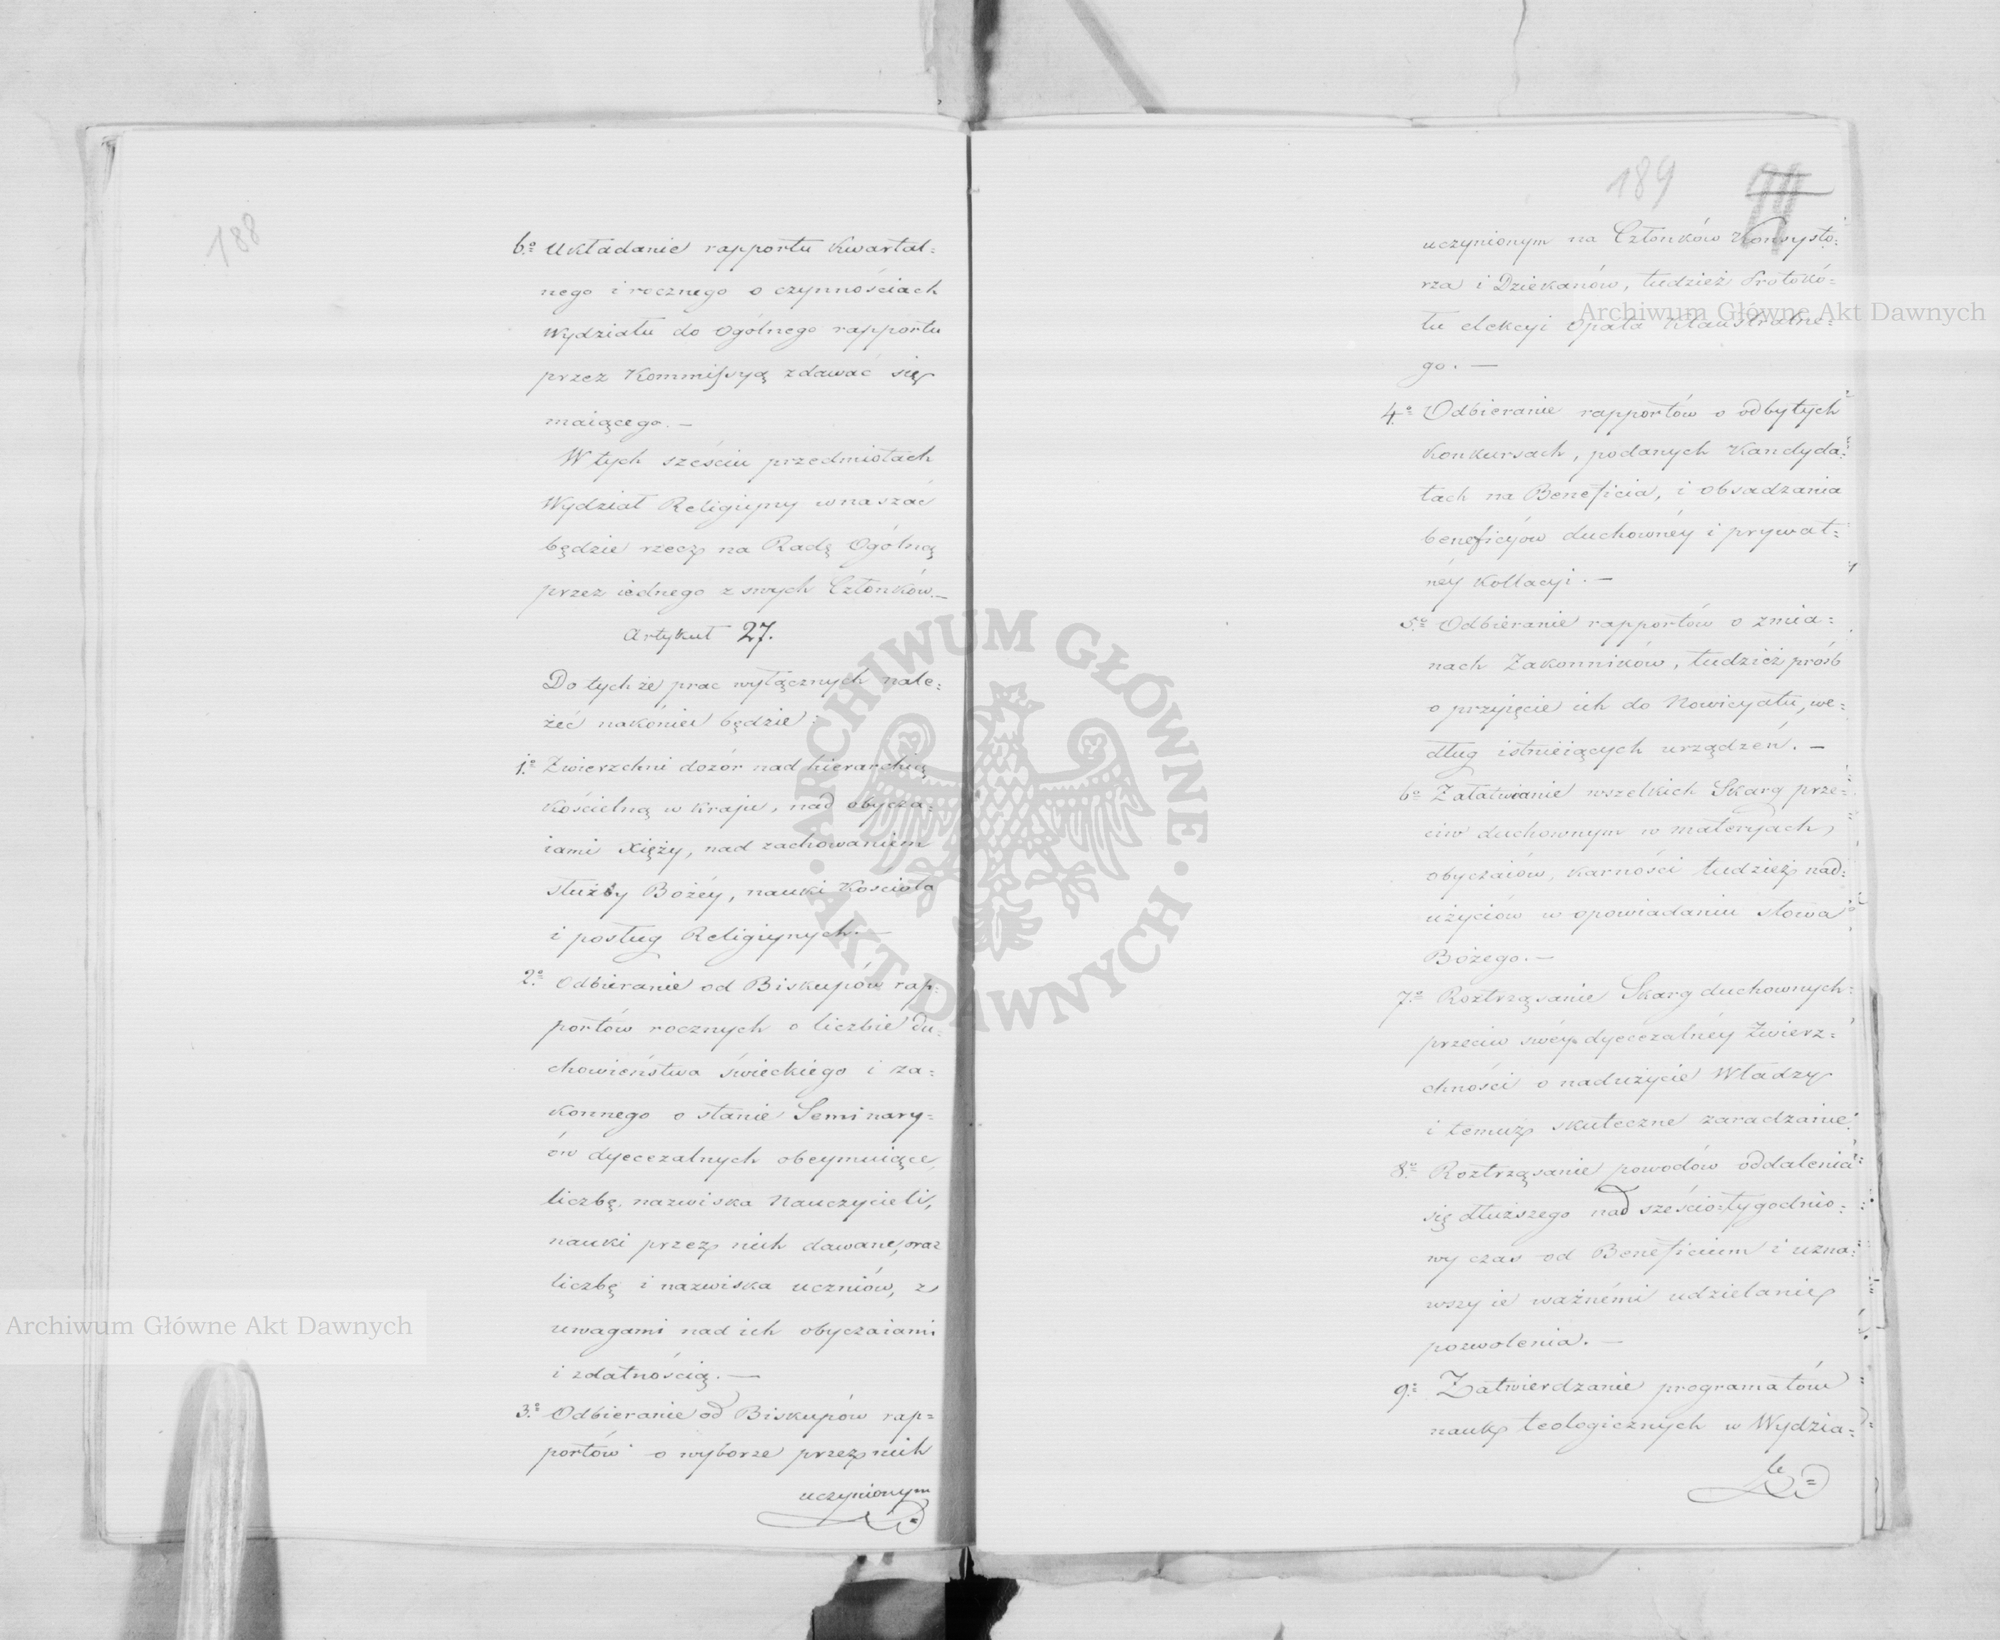 188
6.º Układanie rapportu kwartal=
nego i rocznego o czynnościach
Wydziału do Ogólnego rapportu
przez Kommissyą zdawać się
maiącego. —
W tych sześciu przedmiotach
Wydział Religijny wnaszać
będzie rzecz na Radę Ogólną
przez iednego z swych Członków. —
Artykuł 27.
Do tych że prac wyłącznych nale=
żeć nakóniec będzie:
1.º Zwierzchni dozór nad hierarchią
kościelną w kraju, nad obycza=
iami Xięży, nad zachowaniem
służby Bożéy, nauki Kościoła
i posług Religijnych. —
2.º Odbieranie od Biskupów rap=
portów rocznych o liczbie du=
chowieństwa świeckiego i za=
konnego o stanie Seminary=
ów dyecezalnych obeymuiące
liczbę, nazwiska Nauczycieli,
nauki przez nich dawane, oraz
liczbę i nazwiska uczniów, z
uwagami nad ich obyczaiami
i zdatnością. —
3.º Odbieranie od Biskupów rap=
portów o wyborze przez nich
uczynionym
189
uczynionym na Członków Konsysto=
rza i Dziekanów, tudzież Protokó=
łu elekcyi Opata Klaustralne=
go. —
4.º Odbieranie rapportów o odbytych
konkursach, podanych Kandyda=
tach na Beneficia, i obsadzania
beneficyów duchownéy i prywat=
néy Kollacyi. —
5.º Odbieranie rapportów o zmia=
nach Zakonników, tudzież próśb
o przyięcie ich do Nowicyatu, we=
dług istnieiących urządzeń. —
6.º Załatwianie wszelkich Skarg prze=
ciw duchownym w materyach,
obyczaiów, karności tudzież nad=
użyciów w opowiadaniu słowa
Bożego. —
7.º Roztrząsanie Skarg duchownych
przeciw swéy dyecezalnéy Zwierz=
chności o nadużycie Władzy
i temuż skuteczne zaradzanie.
8.º Roztrząsanie powodów oddalenia
się dłuższego nad sześciotygodnio=
wy czas od Beneficium i uzna=
wszy ie ważnémi udzielanie
pozwolenia. —
9.º Zatwierdzanie programatów
nauk teologicznych w Wydzia=
le
Archiwum Główne Akt Dawnych
Archiwum Główne Akt Dawnych
ARCHIWUM GŁÓWNE
AKT DAWNYCH